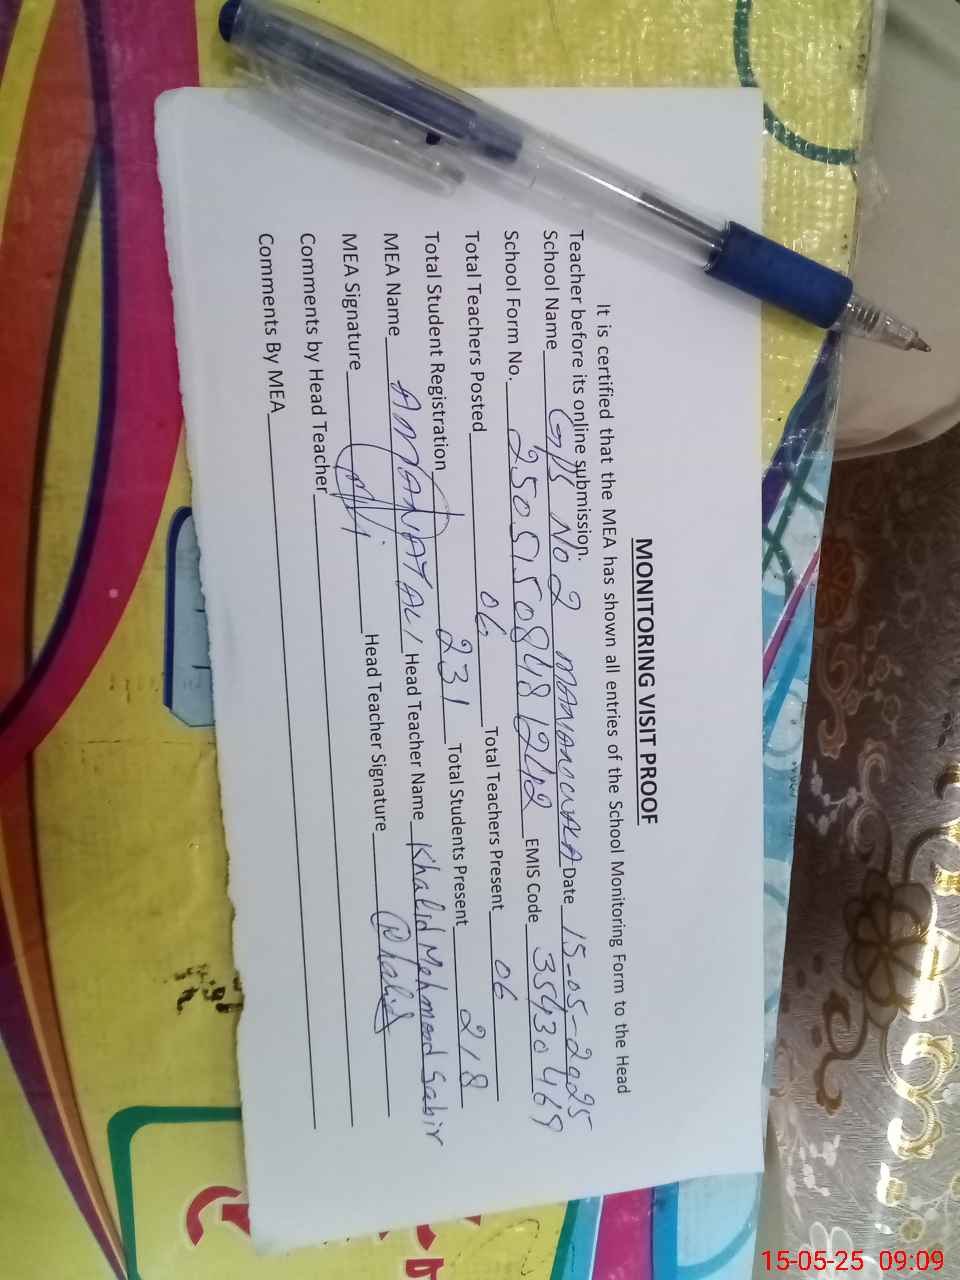 MONITORING VISIT PROOF
It is certified that the MEA has shown all entries of the School Monitoring Form to the Head
Teacher before its online submission.
School Name GPS No 2 Date 15-05-2025
School Form No. 250515084818242 EMIS Code 35430468
Total Teachers Posted 06 Total Teachers Present 06
Total Student Registration 231 Total Students Present 218
MEA Name AMANAT ALI Head Teacher Name Khalid Mehmood Sabir
MEA Signature Head Teacher Signature Khalid
Comments by Head Teacher
Comments By MEA
15-05-25 09:09